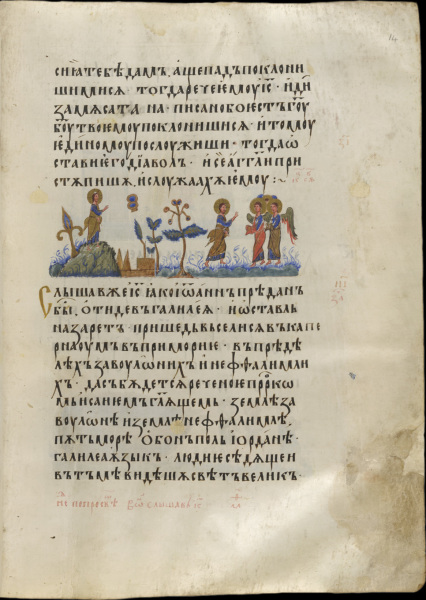 сиꙗ тебѣ дамъ · аще падъ поклони
шимисѧ · тогда рече емоу і҃с · иди
за мѧ сата на · писано бо естъ г҃оу
б҃оу твоемоу поклонишисѧ · и томоу
единомоу послоужиши · тогда ѡ
стави его диаволъ · и се аг҃гли при
стѫпишѧ, и слоужаахѫ емоу :
Слышав же і҃с ꙗко иѡаннъ прѣданъ
бы · отиде въ галилеѧ · и ѡставль
назаретъ · пришед въселисѧ въ капе
рнаоумъ въ приморие · въ прѣдѣ
лѣхъ завоулѡнихъ и неффалимли
хъ · да събѫдетсѧ реченое пр҃рко
мь исаиемь г҃лѧщемь · землѣ за
воулѡнѣ и землѣ неффалимлѣ,
пѫть морѣ обонъ полъ иорданѣ ·
галилеа ѧзыкъ · людие сѣдѧщеи
въ тъмѣ видѣшѧ свѣтъ великъ ·